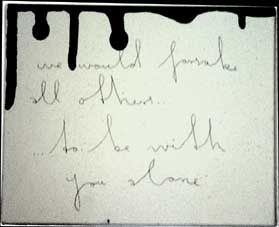 we would forsake
all others..
...to be with
you alone